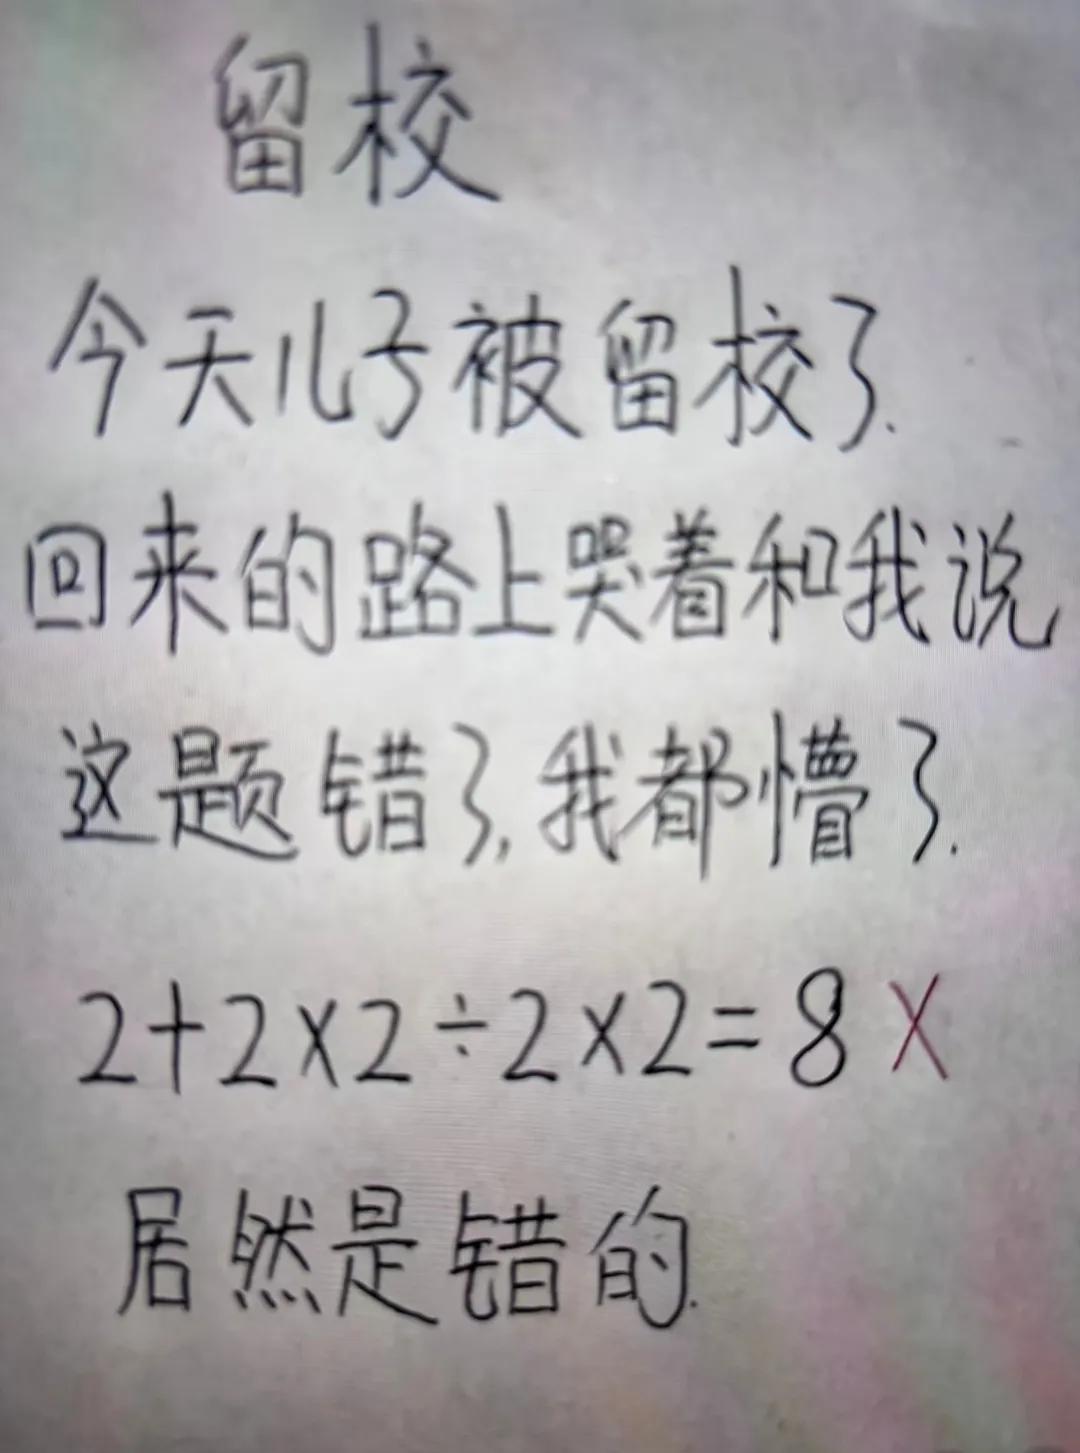 留校
今天儿子被留校了.
回来的路上哭着和我说
这题错了,我都懵了.
2+2×2÷2×2=8 ×
居然是错的.